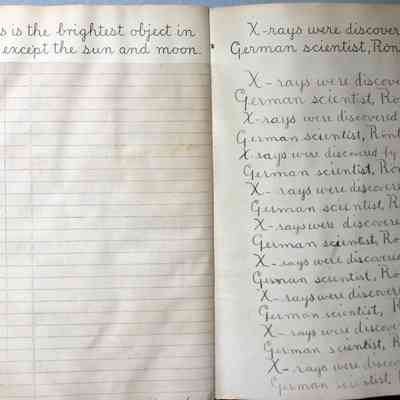 s is the brightest object in
except the sun and moon.
X-rays were discover
German scientist, Rön
X-rays were discove
German scientist, Ro
X-rays were discovered
German scientist, Rönt
X-rays were discovered by
German scientist, Rön
X-rays were discovere
German scientist, R
X-rays were discovere
German scientist, Ro
X-rays were discovered
German scientist, Ro
X-rays were discovere
German scientist, R
X-rays were discove
German scientist, Ro
X-rays were disco
German scientist,